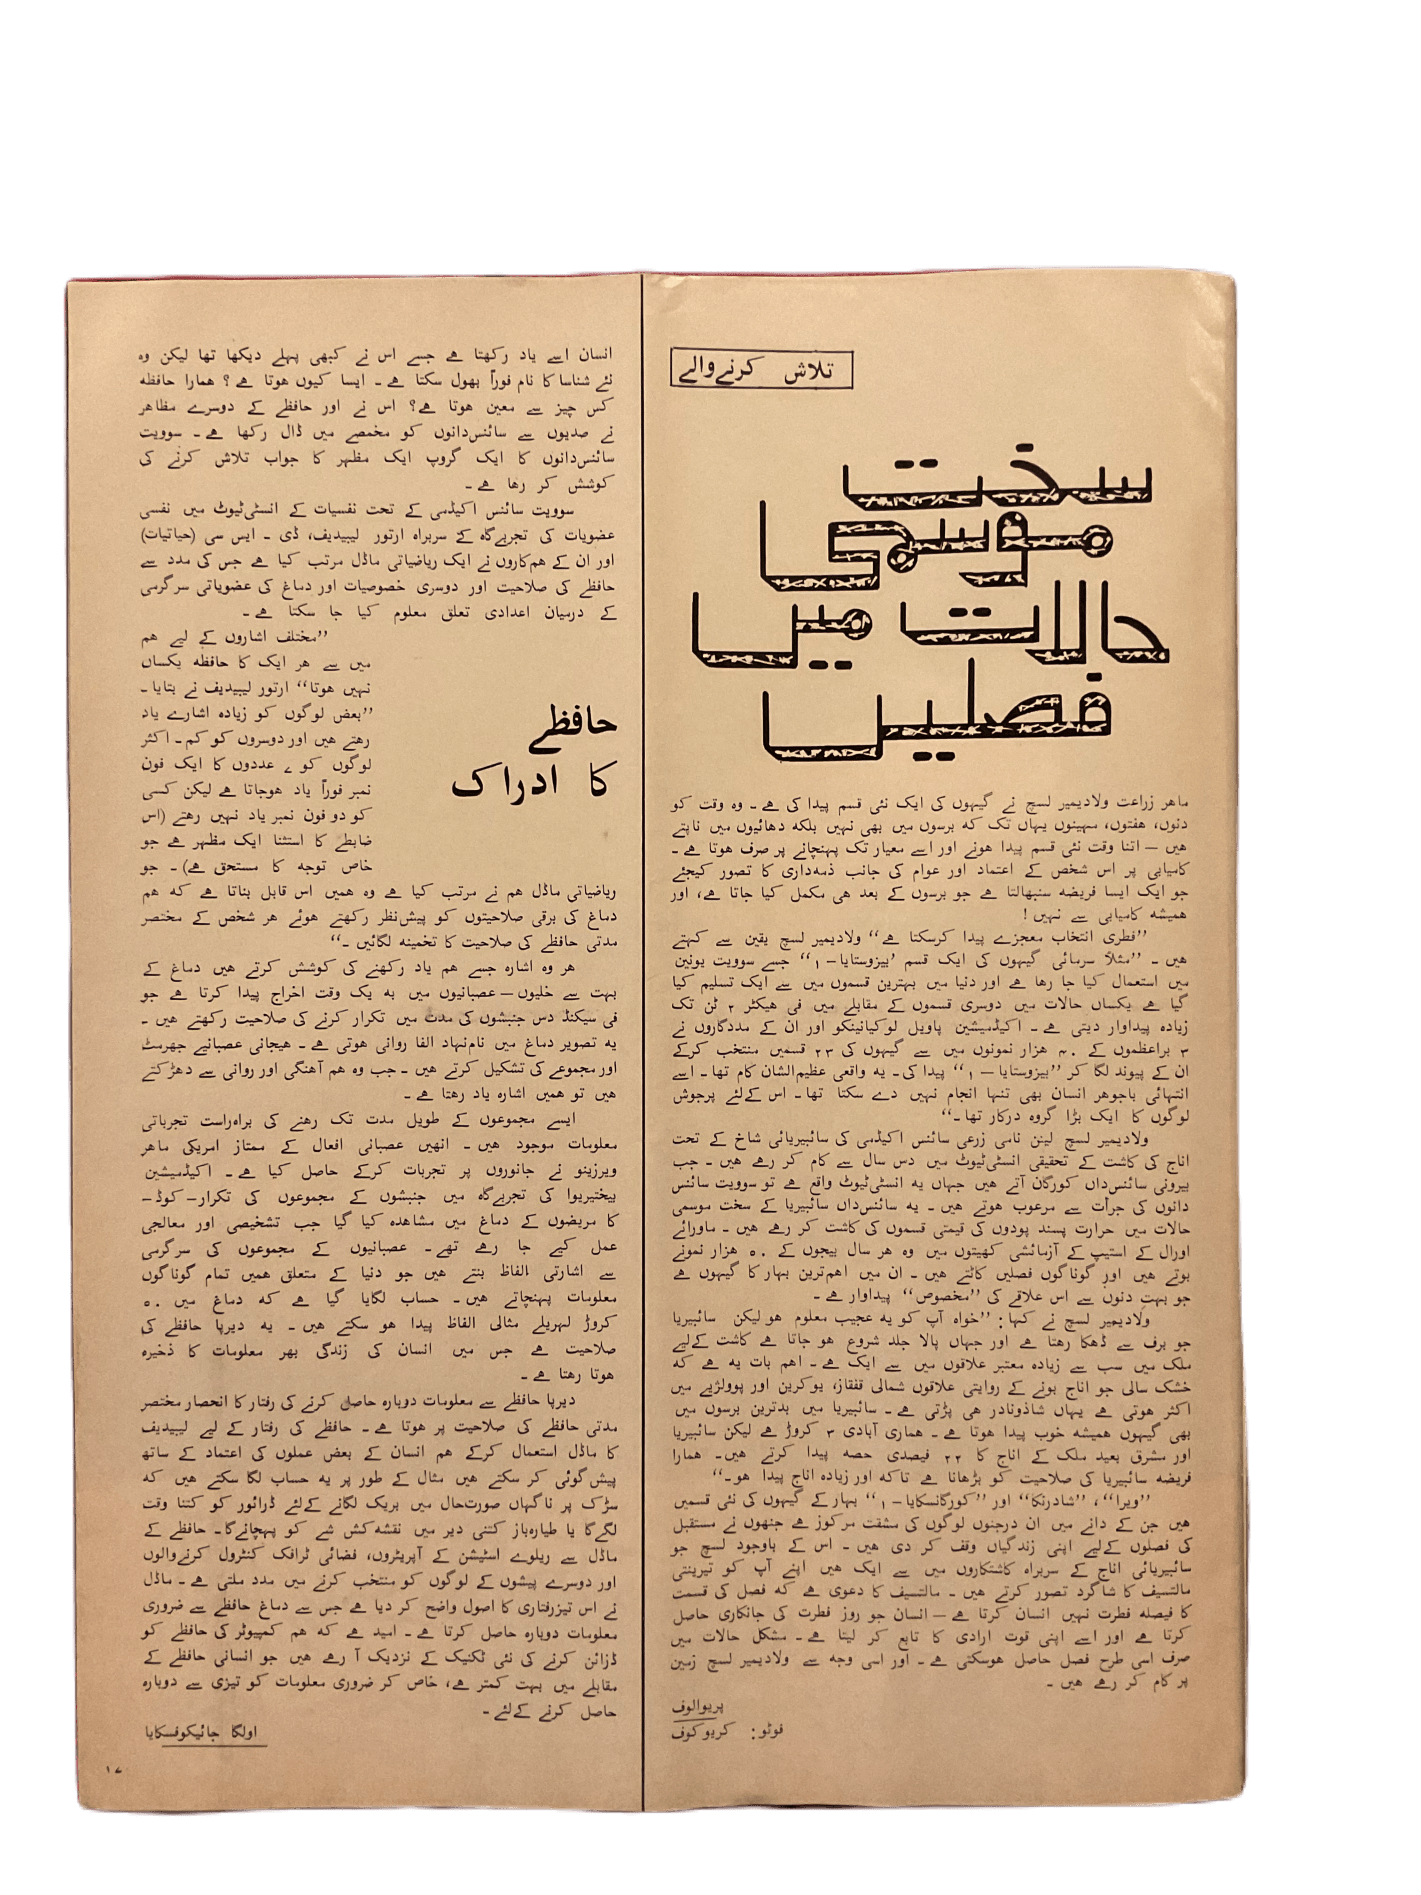 تلاش کرنےوالے
سخت
موسمی
حالات میں
فصلیں
ماهر زراعت ولادیمیر لسچ نے گیہوں کی ایک نئی قسم پیدا کی ہے ۔ وہ وقت کو
دنوں، هفتوں، مہینوں یہاں تک کہ برسوں میں بھی نہیں بلکہ دهائیوں میں ناپتے
هیں — اتنا وقت نئی قسم پیدا ہونے اور اسے معیار تک پہنچانے پر صرف ہوتا ہے ۔
کامیابی پر اس شخص کے اعتماد اور عوام کی جانب ذمہ‌داری کا تصور کیجئے
جو ایک ایسا فریضہ سنبھالتا ہے جو برسوں کے بعد ھی مکمل کیا جاتا ہے، اور
همیشہ کامیابی سے نہیں !
”فطری انتخاب معجزے پیدا کرسکتا ہے“ ولادیمیر لسچ یقین سے کہتے
هیں ۔ ”مثلاً سرمائی گیہوں کی ایک قسم ’بیزوستایا–۱“ جسے سوویت یونین
میں استعمال کیا جا رها ہے اور دنیا میں بہترین قسموں میں سے ایک تسلیم کیا
گیا ہے یکساں حالات میں دوسری قسموں کے مقابلے میں فی هیکٹر ۲ ٹن تک
زیادہ پیداوار دیتی ہے ۔ اکیڈمیشین پاویل لوکیانینکو اور ان کے مددگاروں نے
۳ براعظموں کے ۴۰ هزار نمونوں میں سے گیہوں کی ۲۳ قسمیں منتخب کرکے
ان کے پیوند لگا کر ”بیزوستایا–۱“ پیدا کی۔ یہ واقعی عظیم‌الشان کام تھا ۔ اسے
انتہائی باجوهر انسان بھی تنہا انجام نہیں دے سکتا تھا ۔ اس کےلئے پرجوش
لوگوں کا ایک بڑا گروہ درکار تھا ۔“
ولادیمیر لسچ لینن نامی زرعی سائنس اکیڈمی کی سائبیریائی شاخ کے تحت
اناج کی کاشت کے تحقیقی انسٹی‌ٹیوٹ میں دس سال سے کام کر رہے هیں ۔ جب
بیرونی سائنس‌داں کورگان آتے هیں جہاں یہ انسٹی‌ٹیوٹ واقع ہے تو سوویت سائنس
دانوں کی جرأت سے مرعوب ہوتے هیں ۔ یہ سائنس‌داں سائبیریا کے سخت موسمی
حالات میں حرارت پسند پودوں کی قیمتی قسموں کی کاشت کر رہے هیں ۔ ماورائے
اورال کے استیپ کے آزمائشی کھیتوں میں وہ هر سال بیجوں کے ۵۰ هزار نمونے
بوتے هیں اور گوناگوں فصلیں کاٹتے هیں ۔ ان میں اهم‌ترین بہار کا گیہوں ہے
جو بہت دنوں سے اس علاقے کی ”مخصوص“ پیداوار ہے ۔
ولادیمیر لسچ نے کہا: ”خواہ آپ کو یہ عجیب معلوم هو لیکن سائبیریا
جو برف سے ڈھکا رهتا ہے اور جہاں پالا جلد شروع هو جاتا ہے کاشت کےلیے
ملک میں سب سے زیادہ معتبر علاقوں میں سے ایک ہے ۔ اهم بات یہ ہے کہ
خشک سالی جو اناج بونے کے روایتی علاقوں شمالی قفقاز، یوکرین اور پوولژیے میں
اکثر ہوتی ہے یہاں شاذونادر هی پڑتی ہے ۔ سائبیریا میں بدترین برسوں میں
بھی گیہوں همیشہ خوب پیدا ہوتا ہے ۔ هماری آبادی ۳ کروڑ ہے لیکن سائبیریا
اور مشرق بعید ملک کے اناج کا ۲۲ فیصدی حصہ پیدا کرتے هیں۔ همارا
فریضہ سائبیریا کی صلاحیت کو بڑھانا ہے تاکہ اور زیادہ اناج پیدا ہو۔“
”ویرا“، ”شادرنکا“ اور ”کورگانسکایا–۱“ بہار کے گیہوں کی نئی قسمیں
هیں جن کے دانے میں ان درجنوں لوگوں کی مشقت مرکوز ہے جنھوں نے مستقبل
کی فصلوں کےلیے اپنی زندگیاں وقف کر دی هیں ۔ اس کے باوجود لسچ جو
سائبیریائی اناج کے سربراہ کاشتکاروں میں سے ایک هیں اپنے آپ کو تیرینتی
مالتسیف کا شاگرد تصور کرتے هیں ۔ مالتسیف کا دعوی ہے کہ فصل کی قسمت
کا فیصلہ فطرت نہیں انسان کرتا ہے — انسان جو روز فطرت کی جانکاری حاصل
کرتا ہے اور اسے اپنی قوت ارادی کا تابع کر لیتا ہے ۔ مشکل حالات میں
صرف اسی طرح فصل حاصل ہوسکتی ہے ۔ اور اسی وجہ سے ولادیمیر لسچ زمین
پر کام کر رہے هیں ۔
پریوالوف
فوٹو: کریوکوف
انسان اسے یاد رکھتا ہے جسے اس نے کبھی پہلے دیکھا تھا لیکن وہ
نئے شناسا کا نام فوراً بھول سکتا ہے ۔ ایسا کیوں ہوتا ہے ؟ همارا حافظہ
کس چیز سے معین ہوتا ہے؟ اس نے اور حافظے کے دوسرے مظاهر
نے صدیوں سے سائنس‌دانوں کو مخمصے میں ڈال رکھا ہے ۔ سوویت
سائنس‌دانوں کا ایک گروپ ایک مظہر کا جواب تلاش کرنے کی
کوشش کر رها ہے ۔
سوویت سائنس اکیڈمی کے تحت نفسیات کے انسٹی‌ٹیوٹ میں نفسی
عضویات کی تجربےگاہ کے سربراہ ارتور لیبیدیف، ڈی ۔ ایس سی (حیاتیات)
اور ان کے هم‌کاروں نے ایک ریاضیاتی ماڈل مرتب کیا ہے جس کی مدد سے
حافظے کی صلاحیت اور دوسری خصوصیات اور دماغ کی عضویاتی سرگرمی
کے درمیان اعدادی تعلق معلوم کیا جا سکتا ہے ۔
حافظے
کا ادراک
”مختلف اشاروں کے لیے هم
میں سے هر ایک کا حافظہ یکساں
نہیں ہوتا“ ارتور لیبیدیف نے بتایا ۔
”بعض لوگوں کو زیادہ اشارے یاد
رهتے هیں اور دوسروں کو کم ۔ اکثر
لوگوں کو ۷ عددوں کا ایک فون
نمبر فوراً یاد ہوجاتا ہے لیکن کسی
کو دو فون نمبر یاد نہیں رهتے (اس
ضابطے کا استثنا ایک مظہر ہے جو
خاص توجہ کا مستحق ہے) ۔ جو
ریاضیاتی ماڈل هم نے مرتب کیا ہے وہ همیں اس قابل بناتا ہے کہ هم
دماغ کی برقی صلاحیتوں کو پیش‌نظر رکھتے ہوئے هر شخص کے مختصر
مدتی حافظے کی صلاحیت کا تخمینہ لگائیں ۔“
هر وہ اشارہ جسے هم یاد رکھنے کی کوشش کرتے هیں دماغ کے
بہت سے خلیوں — عصبانیوں میں بہ یک وقت اخراج پیدا کرتا ہے جو
فی سیکنڈ دس جنبشوں کی مدت میں تکرار کرنے کی صلاحیت رکھتے هیں ۔
یہ تصویر دماغ میں نام‌نہاد الفا روانی ہوتی ہے ۔ هیجانی عصبانیے جھرمٹ
اور مجموعے کی تشکیل کرتے هیں ۔ جب وہ هم آهنگی اور روانی سے دھڑکتے
هیں تو همیں اشارہ یاد رهتا ہے ۔
ایسے مجموعوں کے طویل مدت تک رهنے کی براہ‌راست تجرباتی
معلومات موجود هیں ۔ انھیں عصبانی افعال کے ممتاز امریکی ماهر
ویرزینو نے جانوروں پر تجربات کرکے حاصل کیا ہے ۔ اکیڈمیشین
بیختیریوا کی تجربےگاہ میں جنبشوں کے مجموعوں کی تکرار–کوڈ–
کا مریضوں کے دماغ میں مشاهدہ کیا گیا جب تشخیصی اور معالجی
عمل کیے جا رہے تھے۔ عصبانیوں کے مجموعوں کی سرگرمی
سے اشارتی الفاظ بنتے هیں جو دنیا کے متعلق همیں تمام گوناگوں
معلومات پہنچاتے هیں ۔ حساب لگایا گیا ہے کہ دماغ میں ۵۰
کروڑ لہریلے مثالی الفاظ پیدا ہو سکتے هیں ۔ یہ دیرپا حافظے کی
صلاحیت ہے جس میں انسان کی زندگی بھر معلومات کا ذخیرہ
ہوتا رهتا ہے ۔
دیرپا حافظے سے معلومات دوبارہ حاصل کرنے کی رفتار کا انحصار مختصر
مدتی حافظے کی صلاحیت پر ہوتا ہے ۔ حافظے کی رفتار کے لیے لیبیدیف
کا ماڈل استعمال کرکے هم انسان کے بعض عملوں کی اعتماد کے ساتھ
پیش‌گوئی کر سکتے هیں مثال کے طور پر یہ حساب لگا سکتے هیں کہ
سڑک پر ناگہاں صورت‌حال میں بریک لگانے کےلئے ڈرائور کو کتنا وقت
لگےگا یا طیارہ‌باز کتنی دیر میں نقشہ‌کش شے کو پہچانےگا ۔ حافظے کے
ماڈل سے ریلوے اسٹیشن کے آپریٹروں، فضائی ٹرافک کنٹرول کرنےوالوں
اور دوسرے پیشوں کے لوگوں کو منتخب کرنے میں مدد ملتی ہے ۔ ماڈل
نے اس تیزرفتاری کا اصول واضح کر دیا ہے جس سے دماغ حافظے سے ضروری
معلومات دوبارہ حاصل کرتا ہے ۔ امید ہے کہ هم کمپیوٹر کی حافظے کو
ڈزائن کرنے کی نئی ٹکنیک کے نزدیک آ رہے هیں جو انسانی حافظے کے
مقابلے میں بہت کمتر ہے، خاص کر ضروری معلومات کو تیزی سے دوبارہ
حاصل کرنے کےلئے ۔
اولگا جائیکوفسکایا
۱۷